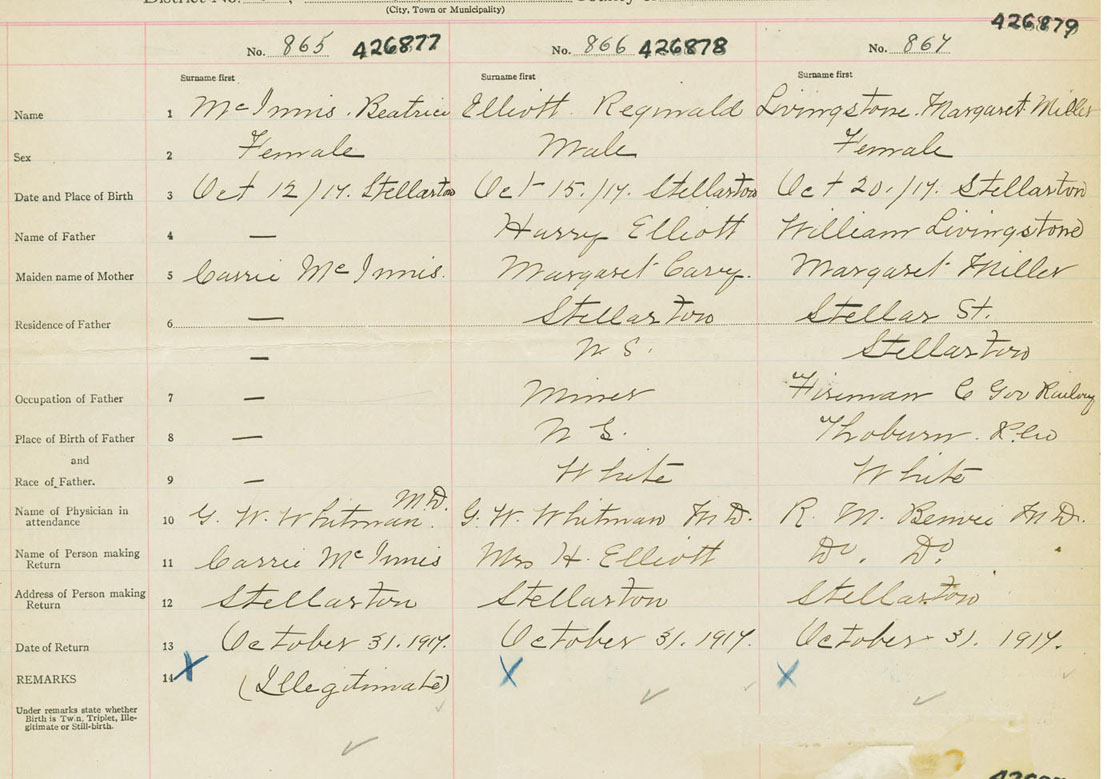 (City, Town or Municipality)
No. 865 426877 No. 866 426878 No. 867 426879
Surname first Surname first Surname first
Name 1 McInnis. Beatrice Elliott Reginald Livingstone. Margaret Miller
Sex 2 Female Male Female
Date and Place of Birth 3 Oct 12/17. Stellarton Oct 15./17. Stellarton Oct 20./17. Stellarton
Name of Father 4 — Harry Elliott William Livingstone
Maiden name of Mother 5 Carrie McInnis. Margaret Margaret Miller
Residence of Father 6 — Stellarton Stellar St.
— N S. Stellarton
Occupation of Father 7 — Miner Fireman C Gov Railway
Place of Birth of Father 8 — N S. Thoburn.
and
Race of Father. 9 — White White
Name of Physician in attendance 10 G. W. Whitman M.D. G. W. Whitman M.D. R. M. Benvie M.D.
Name of Person making Return 11 Carrie McInnis Mrs H. Elliott Do. Do.
Address of Person making Return 12 Stellarton Stellarton Stellarton
Date of Return 13 October 31. 1917. October 31. 1917. October 31. 1917.
REMARKS 14 X (Illegitimate) X X
Under remarks state whether
Birth is Twin, Triplet, Ille-
gitimate or Still-birth.